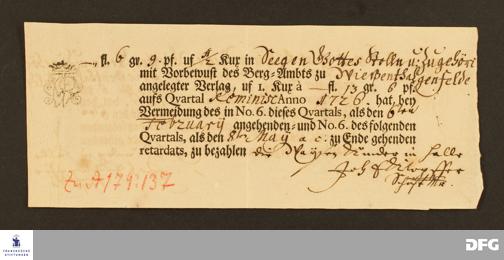 — fl. 6 gr. 9. pf. uf ½ Kux in Seegen Gottes Stolln u. Zugehöri
mit Vorbewust des Berg-Ambts zu
angelegter Verlag, uf 1. Kux à — fl. 13 gr. 6 pf.
aufs Qvartal Reminisc Anno 1726. hat, bey
Vermeidung des in No. 6. dieses Qvartals, als den 6ten
February angehenden, und No. 6. des folgenden
Qvartals, als den 8ten May a. c. zu Ende gehenden
retardats, zu bezahlen die in Halle
Joh.
Zu A 179:137
FRANCKESCHE
STIFTUNGEN
DFG